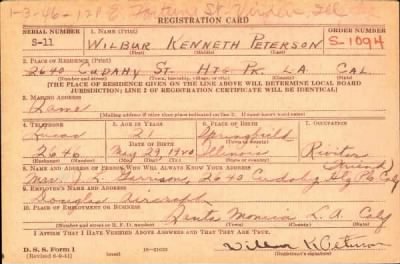 1-3-46-131
REGISTRATION CARD
SERIAL NUMBER 1. NAME (Print) ORDER NUMBER
S-11 WILBUR KENNETH PETERSON S-1094
(First) (Middle) (Last)
2. PLACE OF RESIDENCE (Print)
2640 CUDAHY ST. HTG PK. L.A. CAL.
(Number and street) (Town, township, village, or city) (County) (State)
[THE PLACE OF RESIDENCE GIVEN ON THE LINE ABOVE WILL DETERMINE LOCAL BOARD
JURISDICTION; LINE 2 OF REGISTRATION CERTIFICATE WILL BE IDENTICAL]
3. MAILING ADDRESS
Same
[Mailing address if other than place indicated on line 2. If same insert word same]
4. TELEPHONE 5. AGE IN YEARS 6. PLACE OF BIRTH 7. OCCUPATION
Lucas 21 Springfield
DATE OF BIRTH (Town or county)
2646 May 29 1920 Illinois Riviter
(Exchange) (Number) (Mo.) (Day) (Yr.) (State or country)
8. NAME AND ADDRESS OF PERSON WHO WILL ALWAYS KNOW YOUR ADDRESS Friend
Mrs. 2640 Cudahy Calif
9. EMPLOYER'S NAME AND ADDRESS
Douglas Aircraft
10. PLACE OF EMPLOYMENT OR BUSINESS
Santa Monica L.A. Calif
(Number and street or R. F. D. number) (Town) (County) (State)
I AFFIRM THAT I HAVE VERIFIED ABOVE ANSWERS AND THAT THEY ARE TRUE.
D. S. S. Form 1 Wilbur K Peterson